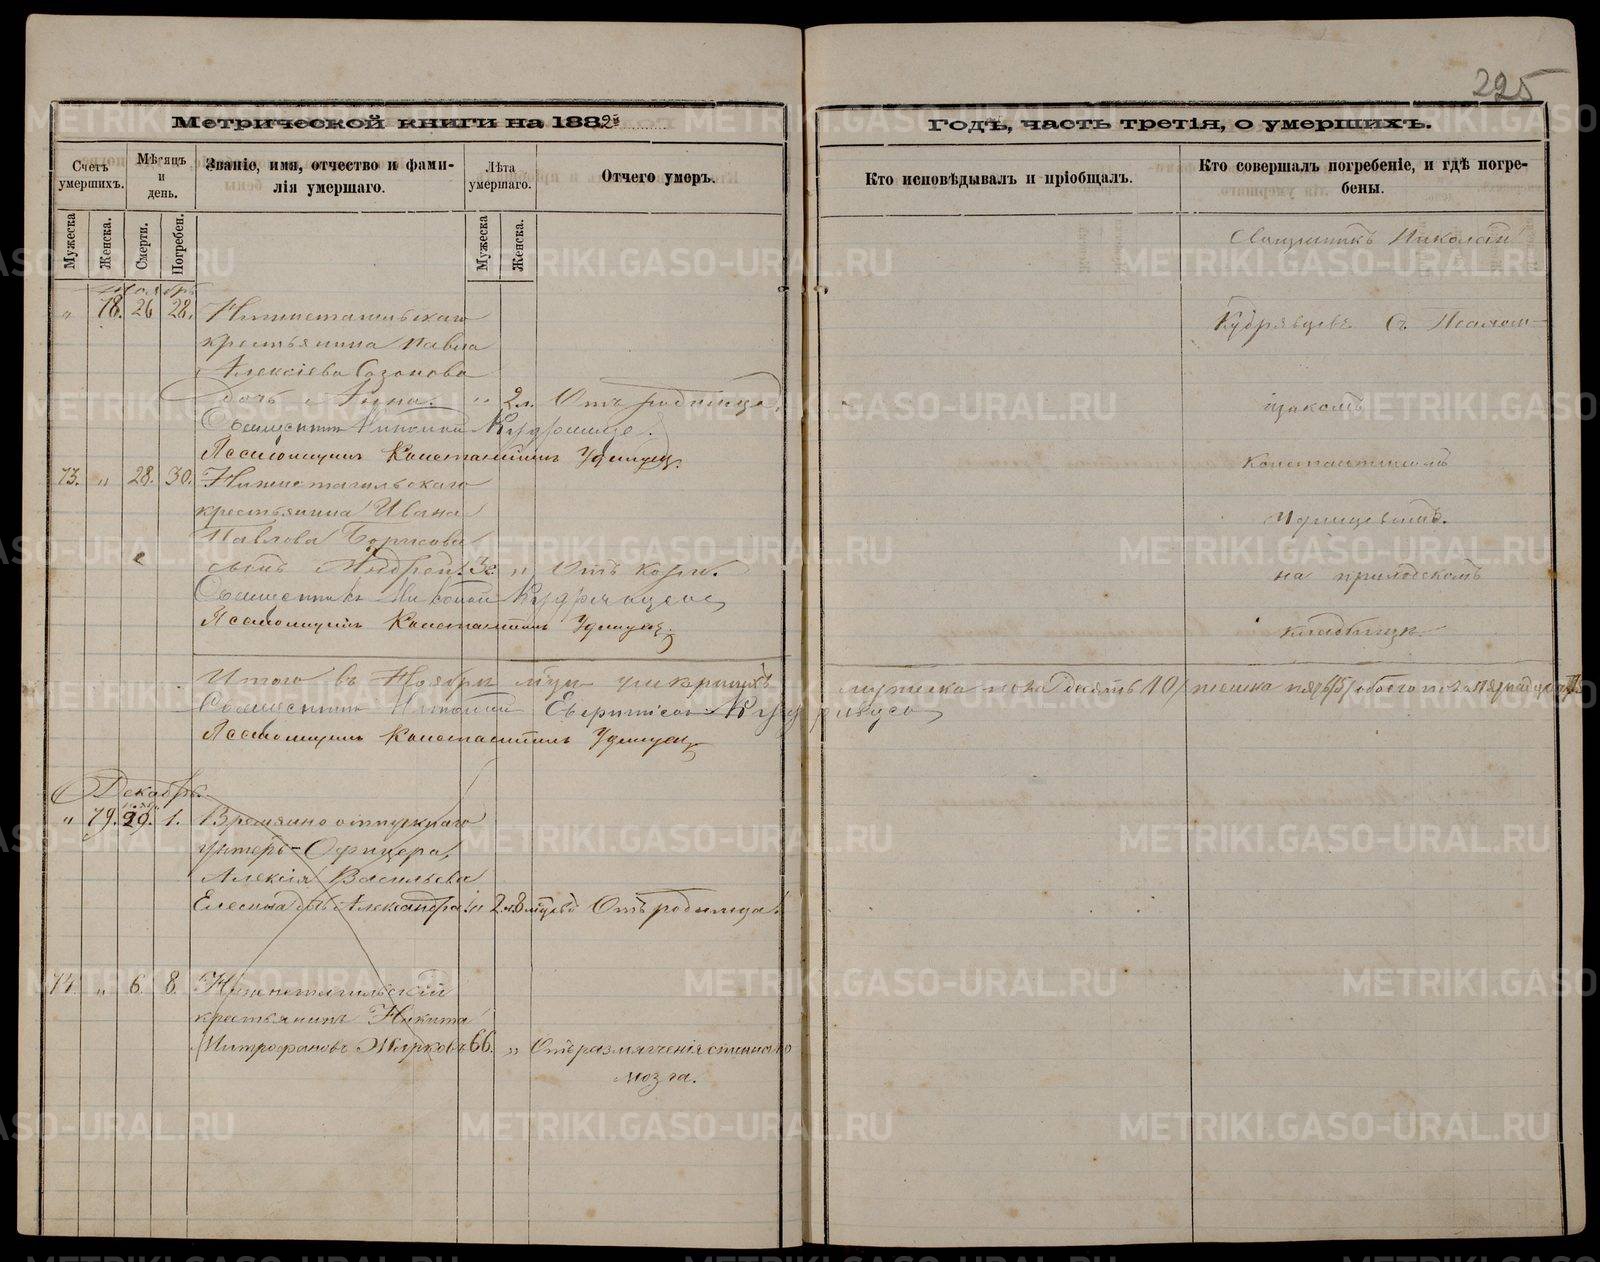 225
Метрической книги на 1882й
годъ, часть третія, о умершихъ.
Счетъ умершихъ.
Мѣсяцъ и день.
Званіе, имя, отчество и фами-
лія умершаго.
Лѣта умершаго.
Отчего умеръ.
Кто исповѣдывалъ и пріобщалъ.
Кто совершалъ погребеніе, и гдѣ погре-
бены.
Мужеска
Женска.
Смерти.
Погребен.
Мужеска
Женска.
" 78. 26 28. Нижнетагильскаго
крестьянина Павла
Алексіева Созонова
дочь Анна. " 2 л. Отъ родимца.
Священникъ Николай Кудрявцевъ.
Псаломщикъ Константинъ Удинцев.
73. " 28. 30. Нижнетагильскаго
крестьянина Ивана
Павлова Борисова
сынъ Андрей. 3 " Отъ кори.
Священникъ Николай Кудрявцевъ
Псаломщикъ Константинъ Удинцев.
Священникъ Николай
Кудрявцевъ Съ Псалом-
щикомъ
Константиномъ
Удинцевымъ.
на приходскомъ
кладбищѣ.
Итого въ Ноябрѣ м-цѣ умершихъ мужеска пола десять 10/ женска пять 5/ обоего пола пятнадцать 15
Священникъ Николай Кудрявцевъ
Псаломщикъ Константинъ Удинцев
Декабрь.
" 79. 29. 1. Временно отпускнаго
Унтеръ-Офицера,
Алексія Васильева
дь Александра. " 2 г. 8 мцевъ Отъ родимца.
74. " 6. 8. Нижнетагильскій
крестьянинъ Никита
Митрофановъ Жирковъ 66. " Отъ размягченія спиннаго
мозга.
METRIKI.GASO-URAL.RU